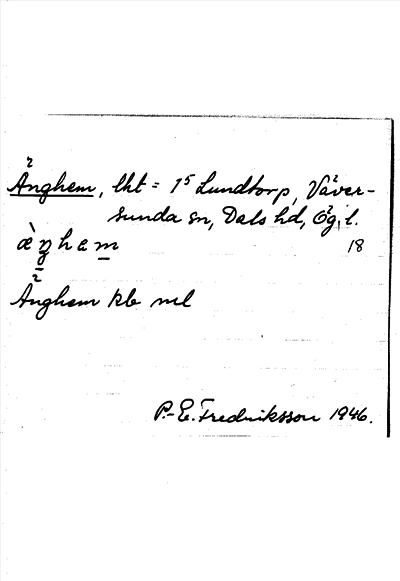 Änghem, lht = 1⁵ Lundtorp, Väver-
sunda sn, Dals hd, Ög. l.
æ̀ŋhem̲ 18
Änghem kb ml
P.-E. Fredriksson 1946.